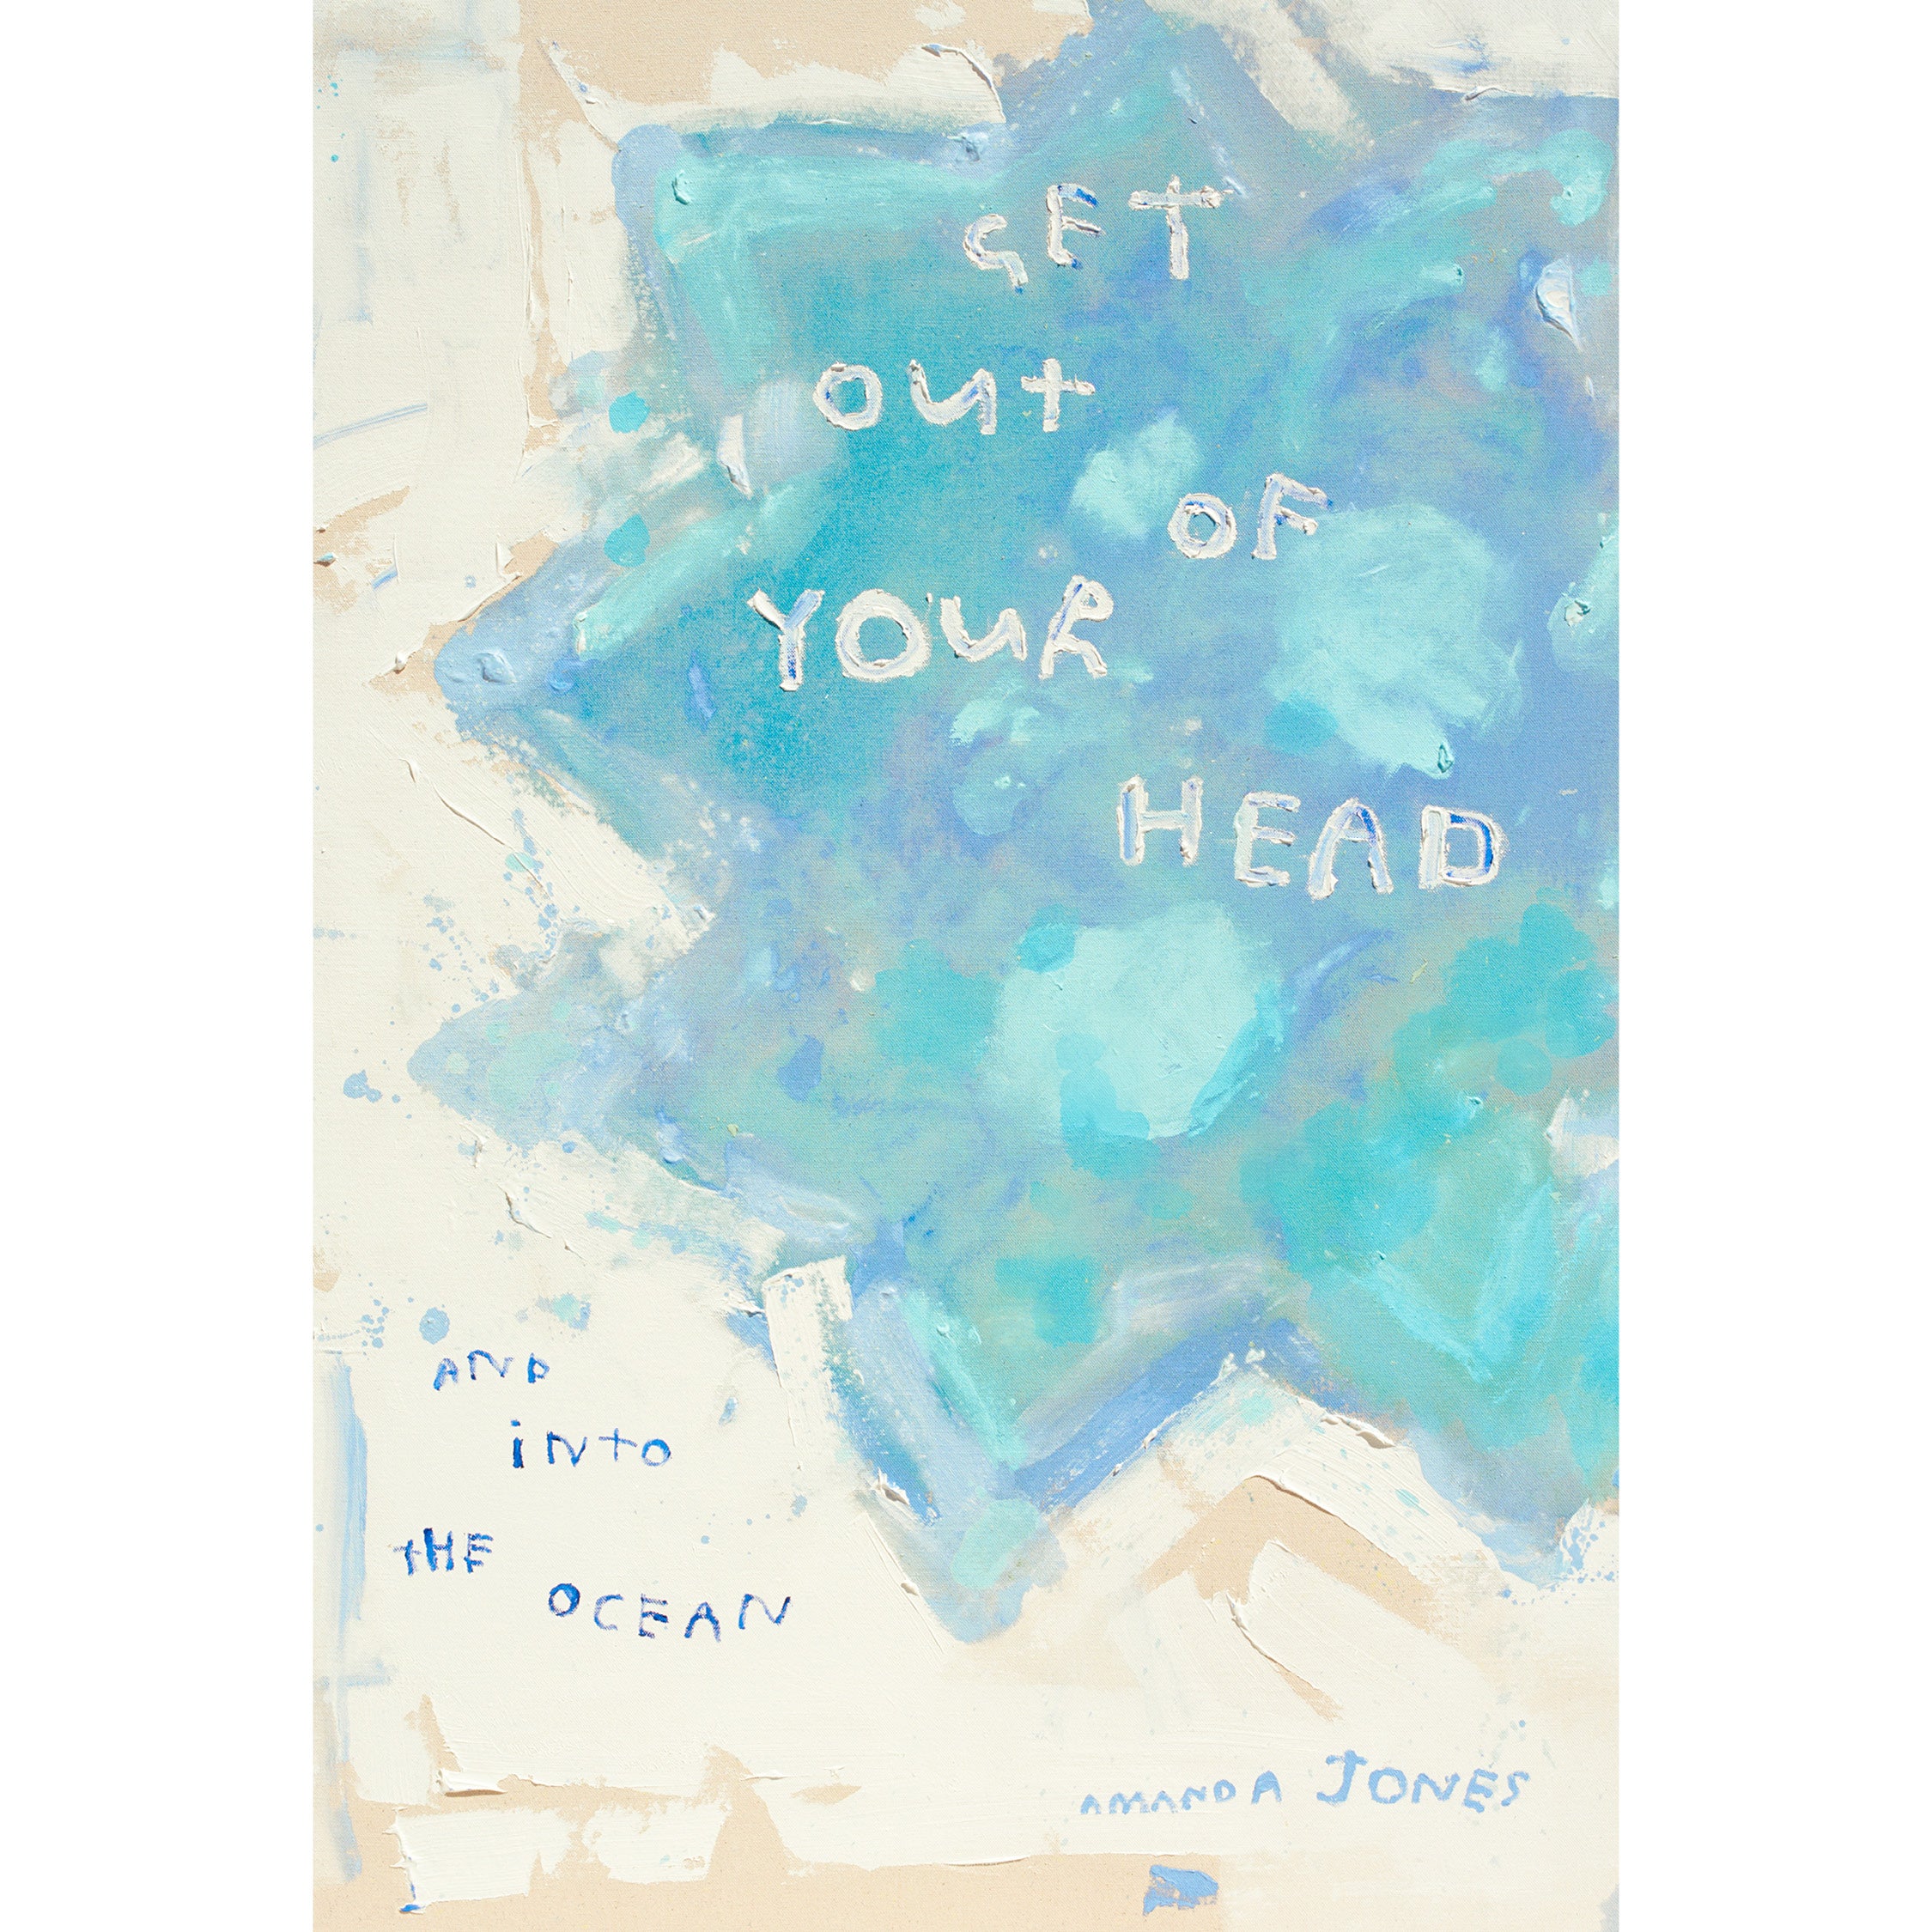 GET
OUT
OF
YOUR
HEAD
AND
iNTO
THE
OCEAN
AMANDA JONES